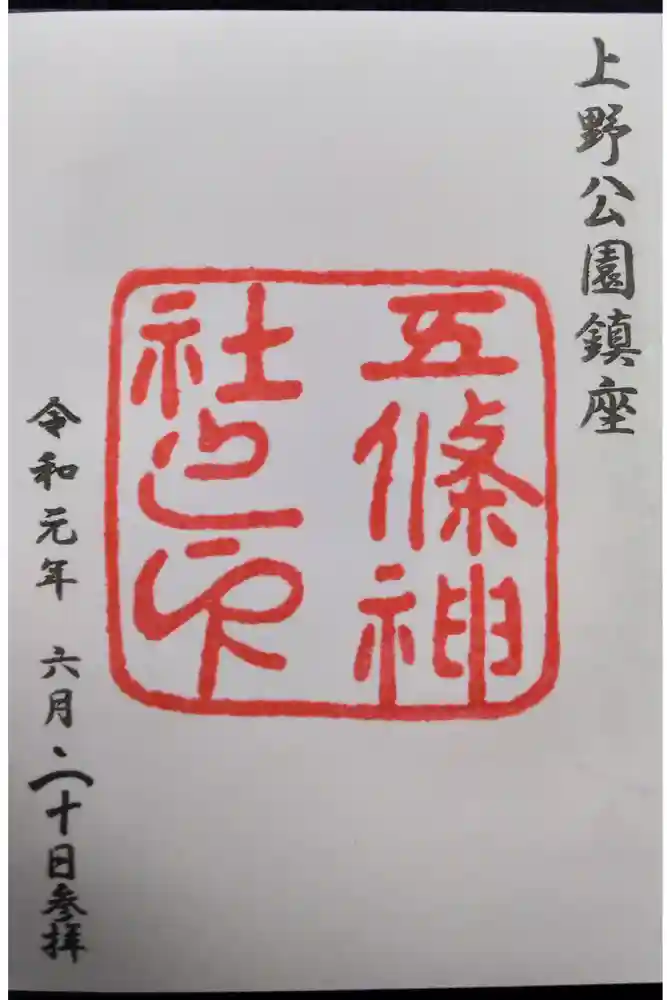 上野公園鎮座
五條神
社之印
令和元年 六月二十日参拝